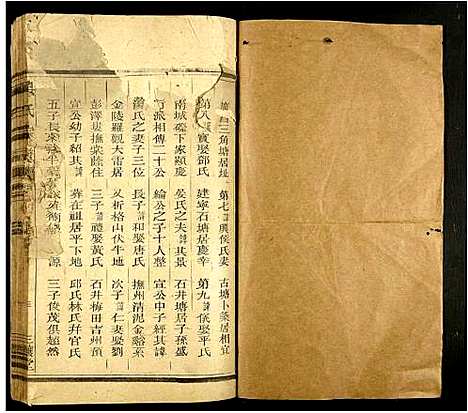 三角塘居址 第七諱興侯氏妻 古塘卜築居相宜
第八諱寶娶鄧氏 建寧石塘居慶幸 第九諱儀娶平氏
南城磜下家顯慶 晏氏之夫諱 石井塘居子孫盛
派相傳二十公 綸公之子十人整 宣公中子經其諱
氏之妻子三位 長子諱和娶唐氏 撫州清泥金谿系
金陵羅觀大雷居 又析格山伏牛地 次子諱仁妻娶劉
彭澤裏撫棠陰住 三子諱禮娶黃氏 石井梅田吉州頒
宣公幼子紹其諱 舜在祖居平下地 邱氏林氏并官氏
五子長 源 三子俊茂俱超然